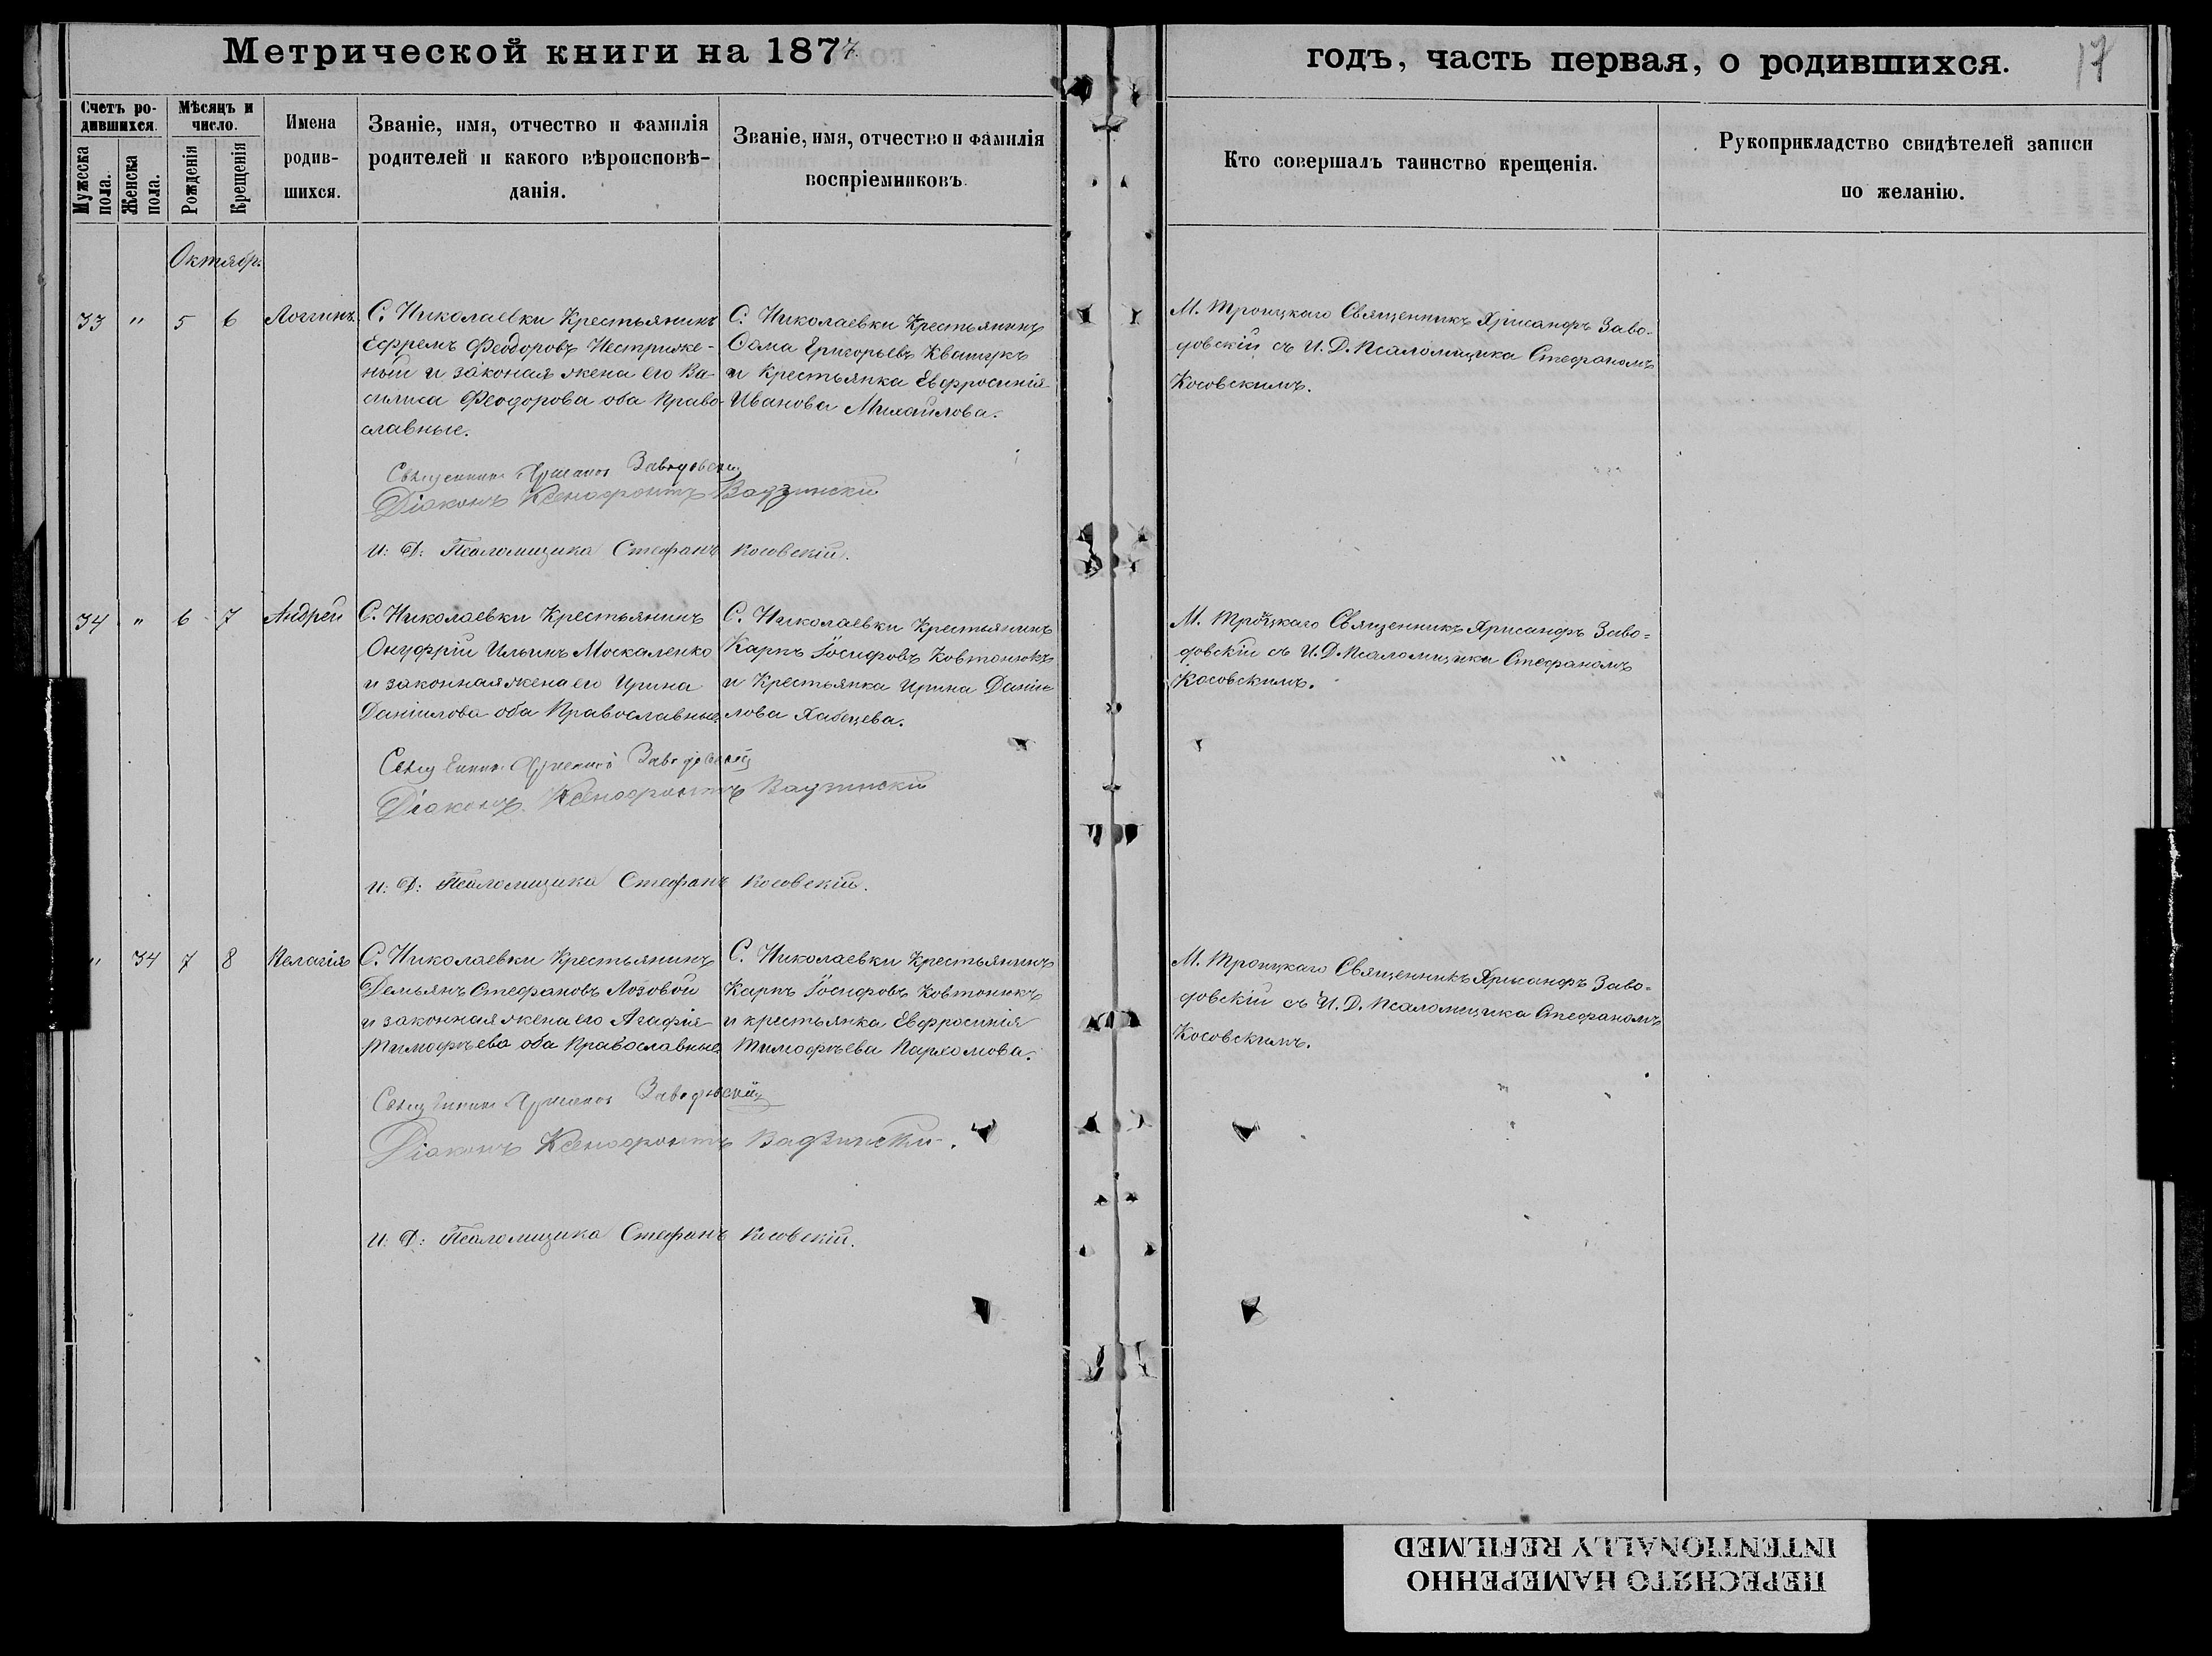 Метрической книги на 1877
годъ, часть первая, о родившихся.
17
Счетъ ро-
дившихся.
Мужеска
пола.
Женска
пола.
Мѣсяцъ и
число.
Рожденія
Крещенія
Имена
родив-
шихся.
Званіе, имя, отчество и фамилія
родителей и какого вѣроисповѣ-
данія.
Званіе, имя, отчество и фамилія
воспріемниковъ.
Кто совершалъ таинство крещенія.
Рукоприкладство свидѣтелей записи
по желанію.
Октябр.
33 " 5 6 Логгинъ
С. Николаевки Крестьянинъ
Ефремъ Феодоровъ Нестриже-
ный и законая жена его Ва-
силиса Феодорова оба Право-
славные.
С. Николаевки Крестьянинъ
Фома Григорьевъ Квашукъ
и Крестьянка Евфросинія
Иванова Михайлова.
М. Троицкаго Священникъ Хрисанфъ Заво-
довскій съ И. Д. Псаломщика Стефаномъ
Косовскимъ.
Священникъ Хрисанфъ Заводовскій
Діаконъ Ксенофонтъ Вадзинскій
И: Д: Псаломщика Стефанъ Косовскій.
34 " 6 7 Андрей
С. Николаевки Крестьянинъ
Онуфрій Ильинъ Москаленко
и законная жена его Ирина
Даніилова оба Православные.
С. Николаевки Крестьянинъ
Карпъ Іосифовъ Ковтонюкъ
и Крестьянка Ирина Даніи-
лова Хабецева.
М. Троицкаго Священникъ Хрисанфъ Заво=
довскій съ И. Д. Псаломщика Стефаномъ
Косовскимъ.
Священникъ Хрисанфъ Заводовскій
Діаконъ Ксенофонтъ Вадзинскій
И: Д: Псаломщика Стефанъ Косовскій.
" 34 7 8 Пелагія
С. Николаевки Крестьянинъ
Демьянъ Стефановъ Лозовой
и законная жена его Агафія
Тимофѣева оба Православные.
С. Николаевки Крестьянинъ
Карпъ Іосифовъ Ковтонюкъ
и крестьянка Евфросинія
Тимофѣева Пархомова.
М. Троицкаго Священникъ Хрисанфъ Заво=
довскій съ И. Д. Псаломщика Стефаномъ
Косовскимъ.
Священникъ Хрисанфъ Заводовскій
Діаконъ Ксенофонтъ Вадзинскій.
И: Д: Псаломщика Стефанъ Косовскій.
ПЕРЕСНЯТО НАМЕРЕННО
INTENTIONALLY REFILMED